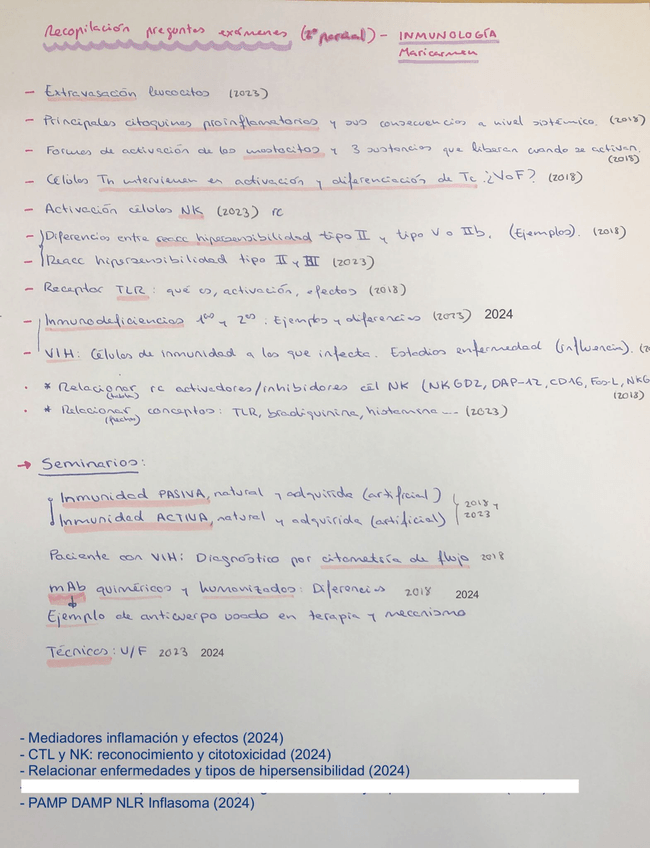 Recopilación preguntas exámenes (2º parcial) - INMUNOLOGÍA
Maricarmen
- Extravasación leucocitos (2023)
- Principales citoquinas proinflamatorias y sus consecuencias a nivel sistémico. (2018)
- Formas de activación de los mastocitos y 3 sustancias que liberan cuando se activan.
(2018)
- Células Th intervienen en activación y diferenciación de Tc ¿VoF? (2018)
- Activación células NK (2023) rc
- Diferencias entre reacc hipersensibilidad tipo II y tipo V o IIb. (Ejemplos). (2018)
- Reacc hipersensibilidad tipo II y III (2023)
- Receptor TLR: qué es, activación, efectos (2018)
- Inmunodeficiencias 1ªˢ y 2ªˢ: Ejemplos y diferencias (2023) 2024
- VIH: Células de inmunidad a las que infecta. Estadios enfermedad (influencia).
· * Relacionar rc activadores/inhibidores cél NK (NKGD2, DAP-12, CD16, Fas-L, NKG
(tabla) (2018)
· * Relacionar conceptos: TLR, bradiquinina, histamina --- (2023)
(flechas)
→ Seminarios:
Inmunidad PASIVA, natural y adquirida (artificial)
Inmunidad ACTIVA, natural y adquirida (artificial)
2018 y
2023
Paciente con VIH: Diagnóstico por citometría de flujo 2018
mAb quiméricos y humanizados: Diferencias 2018 2024
Ejemplo de anticuerpo usado en terapia y mecanismo
Técnicas: V/F 2023 2024
- Mediadores inflamación y efectos (2024)
- CTL y NK: reconocimiento y citotoxicidad (2024)
- Relacionar enfermedades y tipos de hipersensibilidad (2024)
- PAMP DAMP NLR Inflasoma (2024)